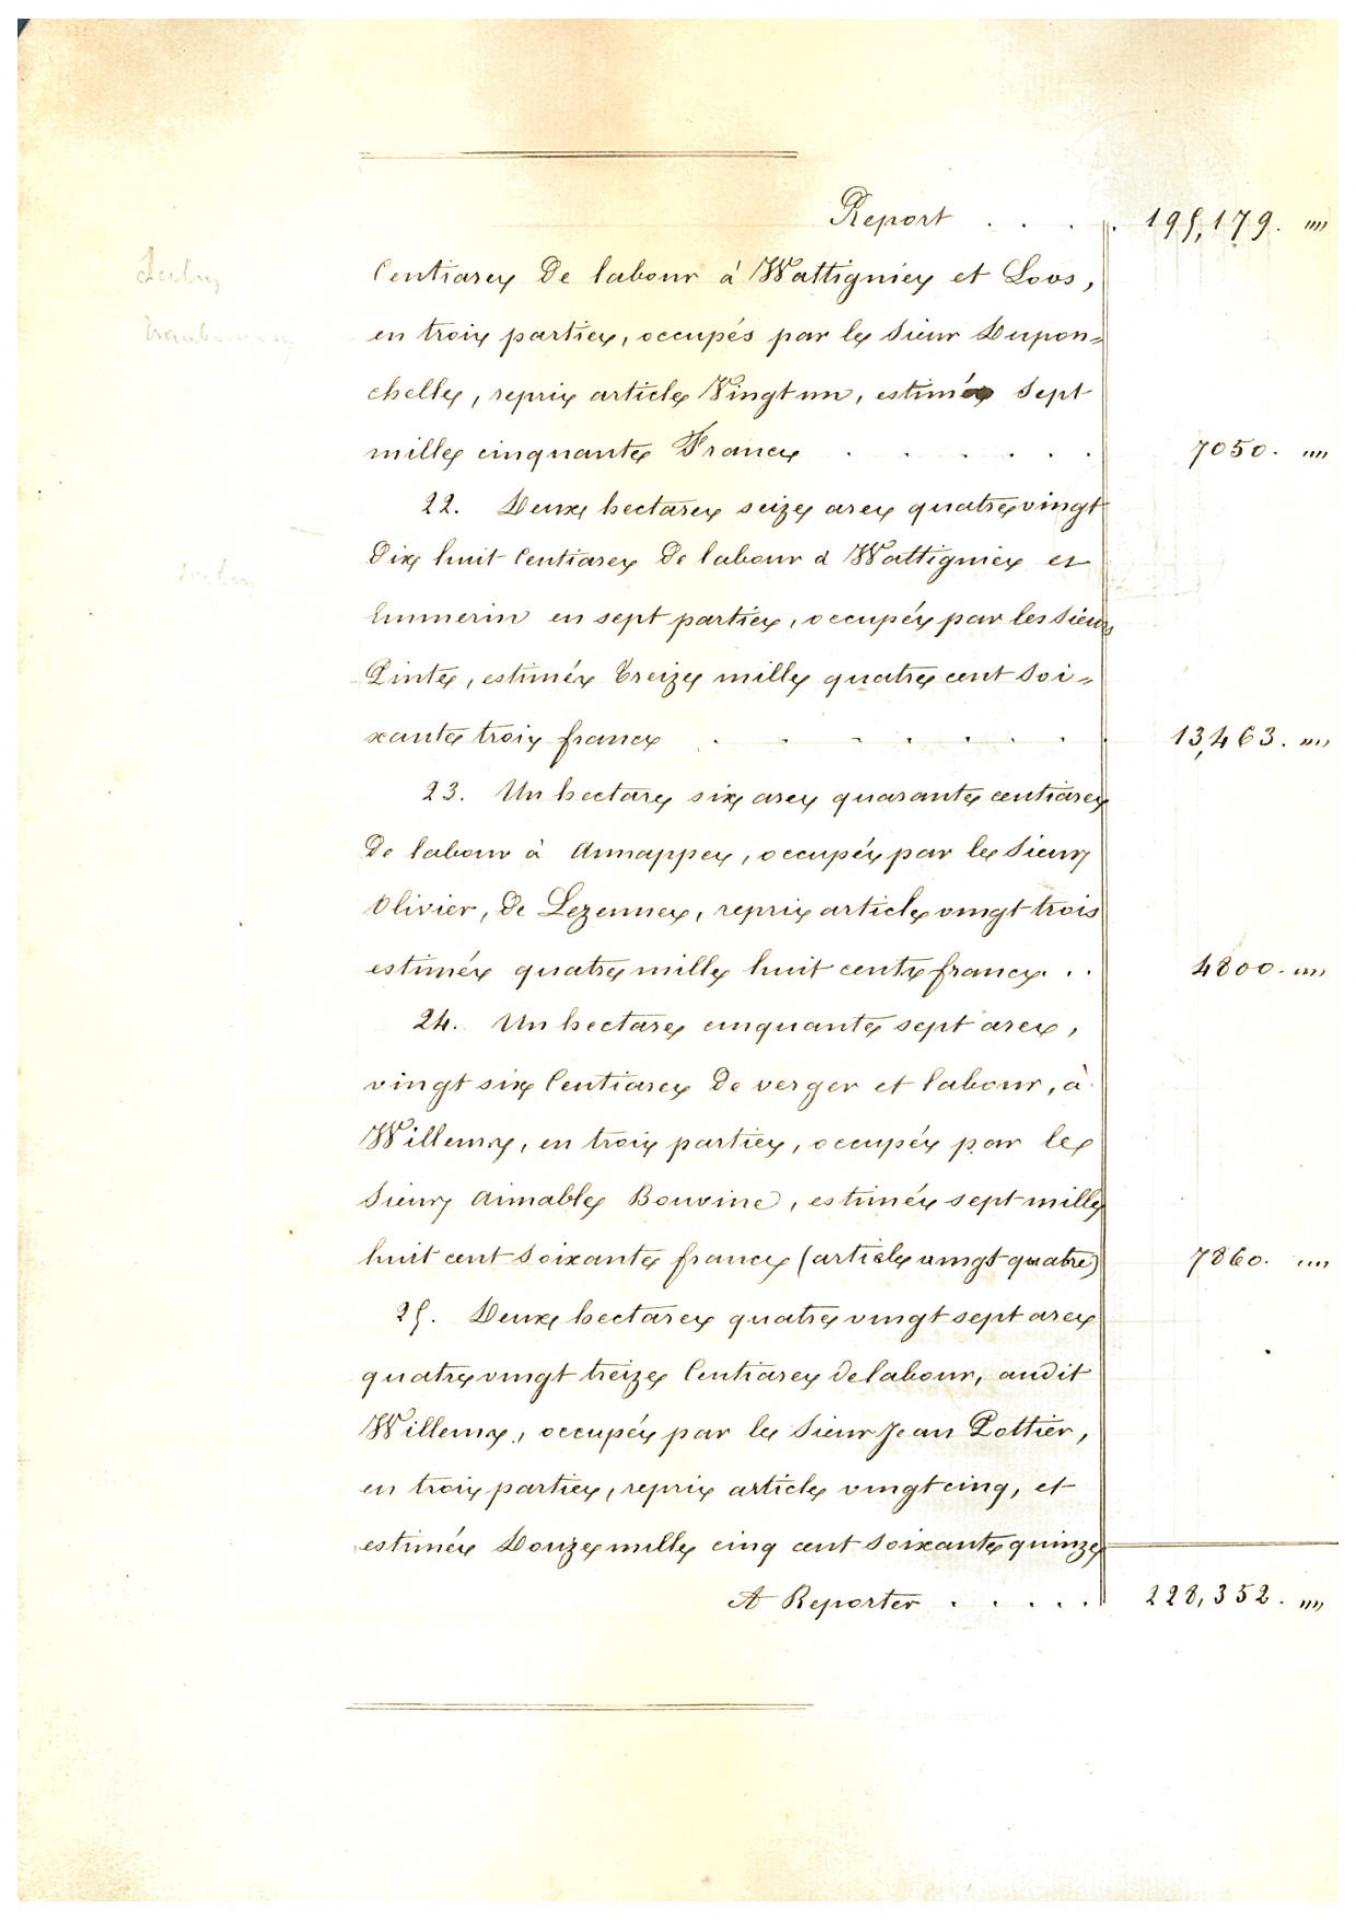 Report . . . . 195,179. ""
Centiares de labour à Wattignies et Loos,
en trois parties, occupés par le Sieur Dupon=
chelle, repris article Vingt un, estimés Sept
mille cinquante Francs . . . . . . 7050. ""
22. Deux hectares seize ares quatre vingt
dix huit Centiares de labour à Wattignies et
Emmerin en sept parties, occupés par les Sieurs
Pinte, estimés Treize mille quatre cent soi=
xante trois francs . . . . . . . . 13,463. ""
23. Un hectare six ares quarante centiares
de labour à Annappes, occupés par le Sieur
Olivier, de Lezennes, repris article vingt trois
estimés quatre mille huit cents francs. . . 4800. ""
24. Un hectare cinquante sept ares,
vingt six Centiares de verger et labour, à
Willems, en trois parties, occupés par le
Sieur Aimable Bouvine, estimés sept mille
huit cent soixante francs (article vingt quatre) 7860. ""
25. Deux hectares quatre vingt sept ares
quatre vingt treize Centiares de labour, audit
Willems, occupés par le Sieur Jean Pottier,
en trois parties, repris article vingt cinq, et
estimés Douze mille cinq cent soixante quinze
A Reporter . . . . . 228,352. ""